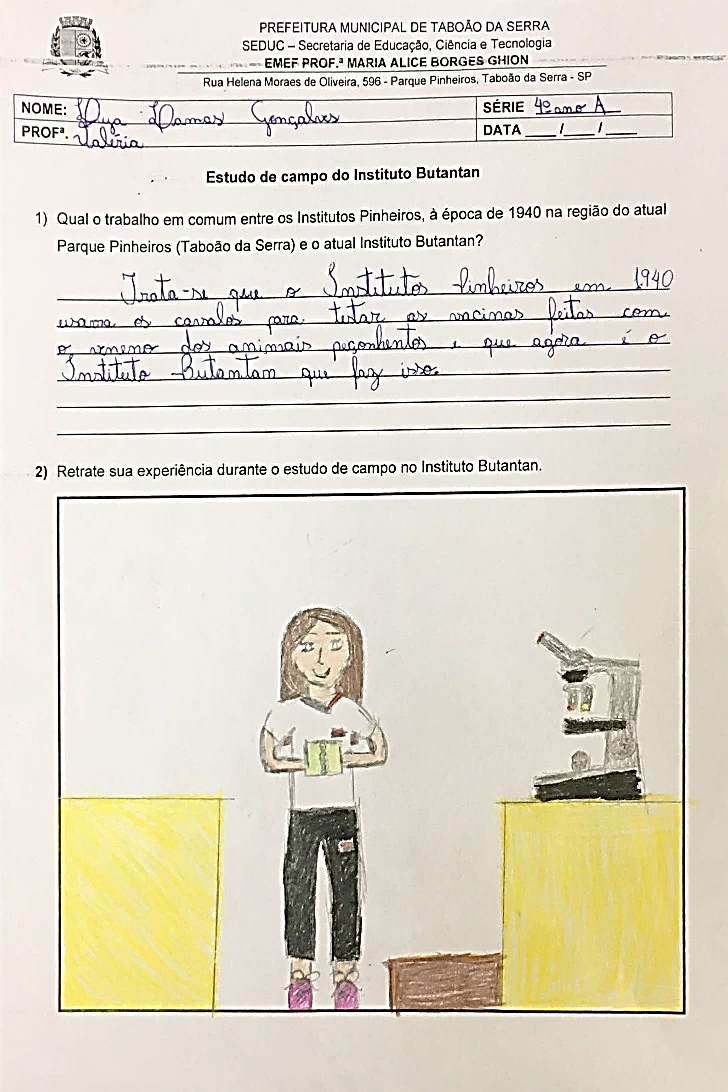 PREFEITURA MUNICIPAL DE TABOÃO DA SERRA
SEDUC – Secretaria de Educação, Ciência e Tecnologia
EMEF PROF.ª MARIA ALICE BORGES GHION
Rua Helena Moraes de Oliveira, 596 - Parque Pinheiros, Taboão da Serra - SP
NOME: Damas Gonçalves SÉRIE 4º ano A
PROFª. Valéria DATA ___/___/___
Estudo de campo do Instituto Butantan
1) Qual o trabalho em comum entre os Institutos Pinheiros, à época de 1940 na região do atual
Parque Pinheiros (Taboão da Serra) e o atual Instituto Butantan?
Trata-se que o Institutos Pinheiros em 1940
usava os cavalos para testar as vacinas feitas com
o veneno dos animais peçonhentos e que agora é o
Instituto Butantam que faz isso.
2) Retrate sua experiência durante o estudo de campo no Instituto Butantan.